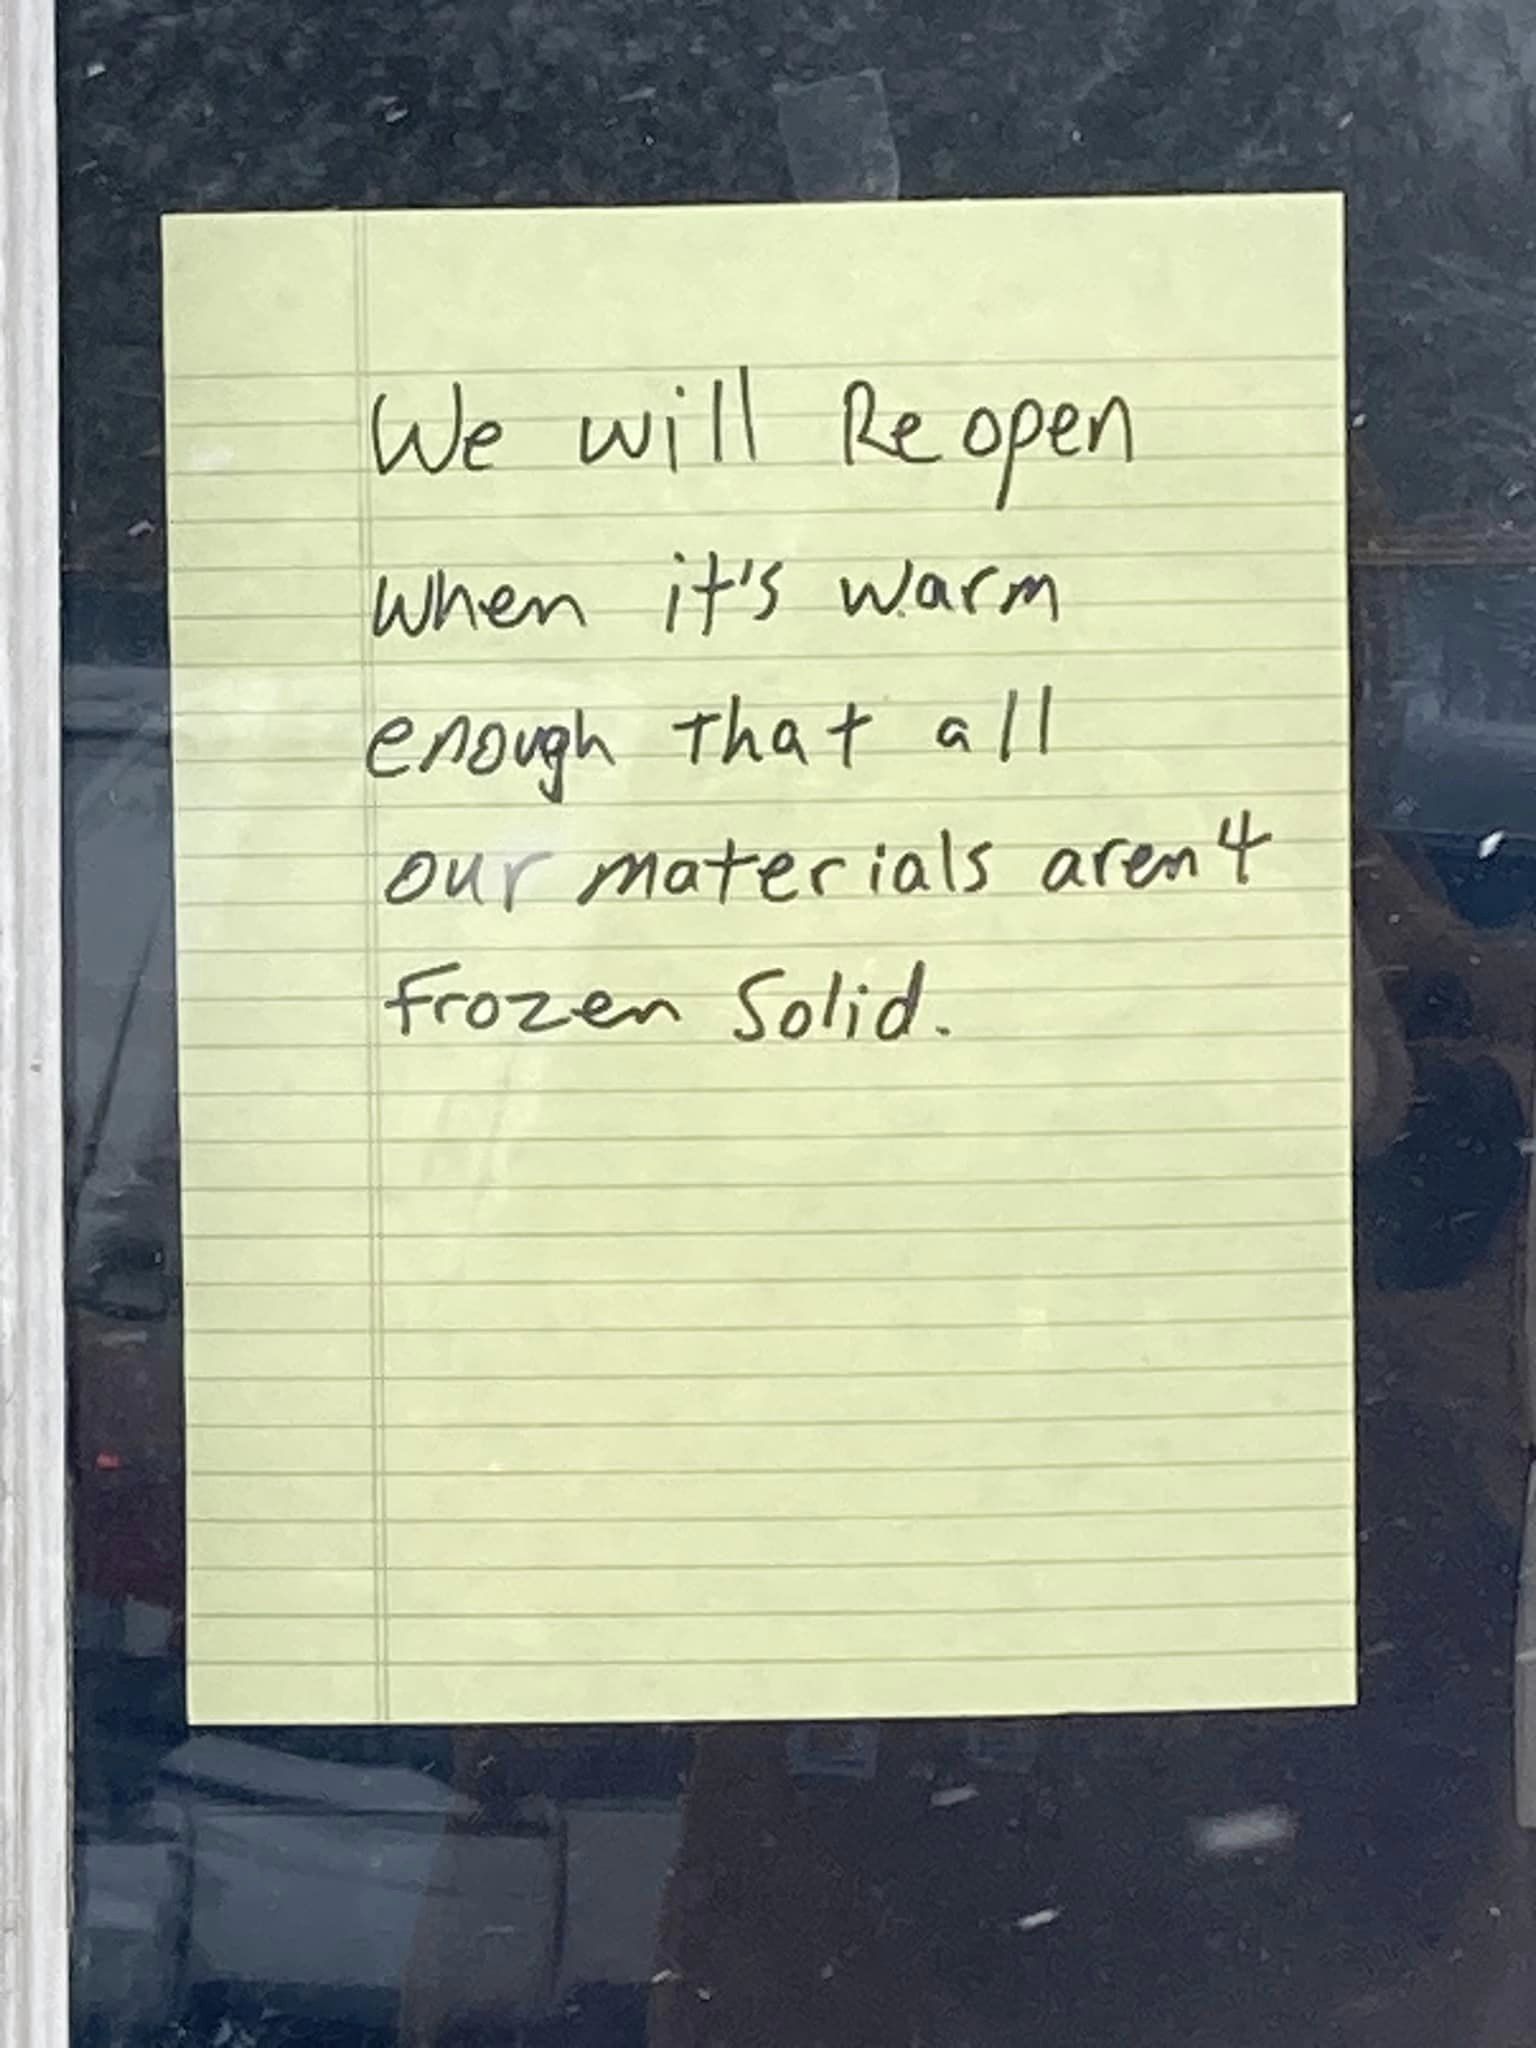 We will Reopen
when it's warm
enough that all
our materials aren't
frozen solid.